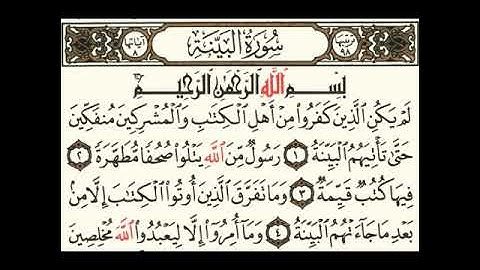 ترتيبها ٩٨ سُورَةُ ٱلْبَيِّنَةِ آياتها ٨
بِسْمِ ٱللَّهِ ٱلرَّحْمَٰنِ ٱلرَّحِيمِ
لَمْ يَكُنِ ٱلَّذِينَ كَفَرُوا۟ مِنْ أَهْلِ ٱلْكِتَٰبِ وَٱلْمُشْرِكِينَ مُنفَكِّينَ
حَتَّىٰ تَأْتِيَهُمُ ٱلْبَيِّنَةُ ١ رَسُولٌ مِّنَ ٱللَّهِ يَتْلُوا۟ صُحُفًا مُّطَهَّرَةً ٢
فِيهَا كُتُبٌ قَيِّمَةٌ ٣ وَمَا تَفَرَّقَ ٱلَّذِينَ أُوتُوا۟ ٱلْكِتَٰبَ إِلَّا مِنۢ
بَعْدِ مَا جَآءَتْهُمُ ٱلْبَيِّنَةُ ٤ وَمَآ أُمِرُوٓا۟ إِلَّا لِيَعْبُدُوا۟ ٱللَّهَ مُخْلِصِينَ